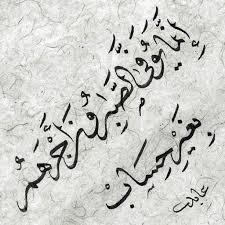 إِنَّمَا يُوَفَّى الصَّٰبِرُونَ أَجْرَهُمْ
بِغَيْرِ حِسَابٍ